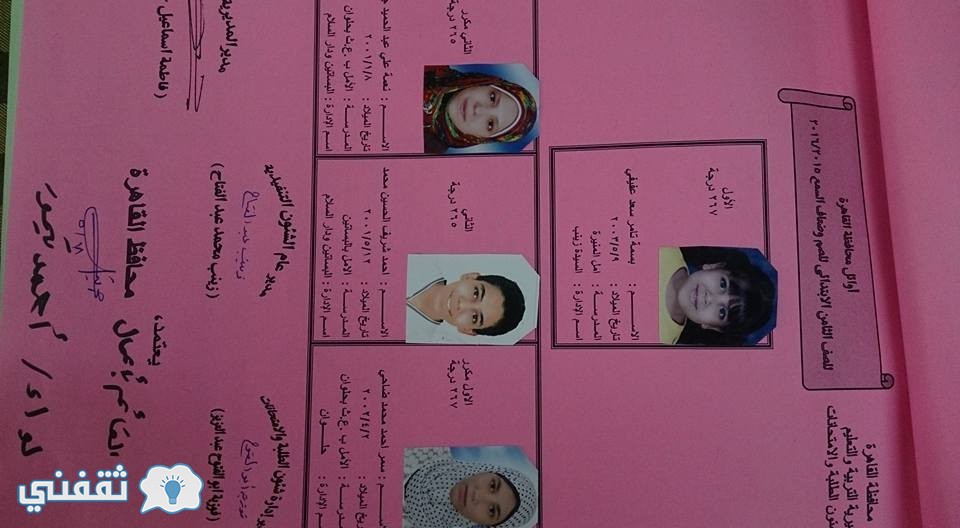 محافظة القاهرة
مديرية التربية والتعليم
شئون الطلبة والامتحانات
أوائل محافظة القاهرة
للصف الثامن الابتدائى للصم وضعاف السمع ٢٠١٦/٢٠١٥
الأول
٢٦٧ درجة
الاســـم : بسمة تامر سعد عفيفي
تاريخ الميلاد : ٢٠٠٣/٥/٩
المدرسة : امل المنيرة
اسم الإدارة : السيدة زينب
الاول مكرر
٢٦٧ درجة
الاســـم : سمر احمد محمد ضاحي
تاريخ الميلاد : ٢٠٠٢/٤/٢
المدرســة : الأمل ب .ع.ث بحلوان
اسم الإدارة : حلـــوان
الثاني
٢٦٥ درجة
الاســـم : احمد شريف الحسين محمد
تاريخ الميلاد : ٢٠٠١/٥/١٢
المدرســة : الامل بالبساتين
اسم الإدارة : البساتين ودار السلام
الثاني مكرر
٢٦٥ درجة
الاســـم : نعمة علي عبد الحميد
تاريخ الميلاد : ٢٠٠١/١/٨
المدرســة : الأمل ب .ع.ث بحلوان
اسم الإدارة : البساتين ودار السلام
مدير إدارة شئون الطلبة والامتحانات
(فوزية أبو الفتوح عبد العزيز)
مدير عام الشئون التنفيذية
(زينب محمد عبد الفتاح)
مدير المديرية
(فاطمة اسماعيل
يعتمد،
القائم بأعمال محافظ القاهرة
لواء / أحمد تيمور
ثقفني